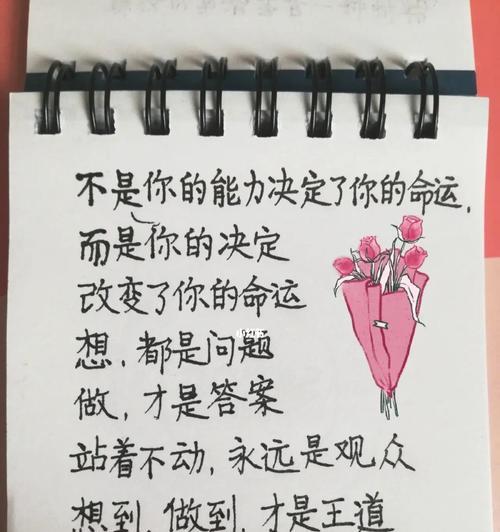 不是你的能力决定了你的命运，
而是你的决定
改变了你的命运
想，都是问题
做，才是答案
站着不动，永远是观众
想到，做到，才是王道